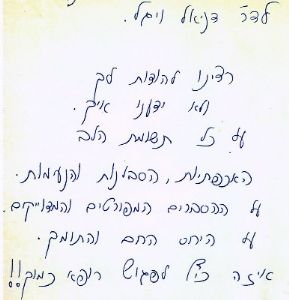 לדר' דניאל ויגל.
רצינו להודות לך
ולא ידענו איך.
על כל תשומת הלב
האכפתיות, הסבלנות והנעימות.
על ההסברים המפורטים והמדוייקים.
על היחס החם והתומך.
איזה כיף לפגוש רופא כמוך!!